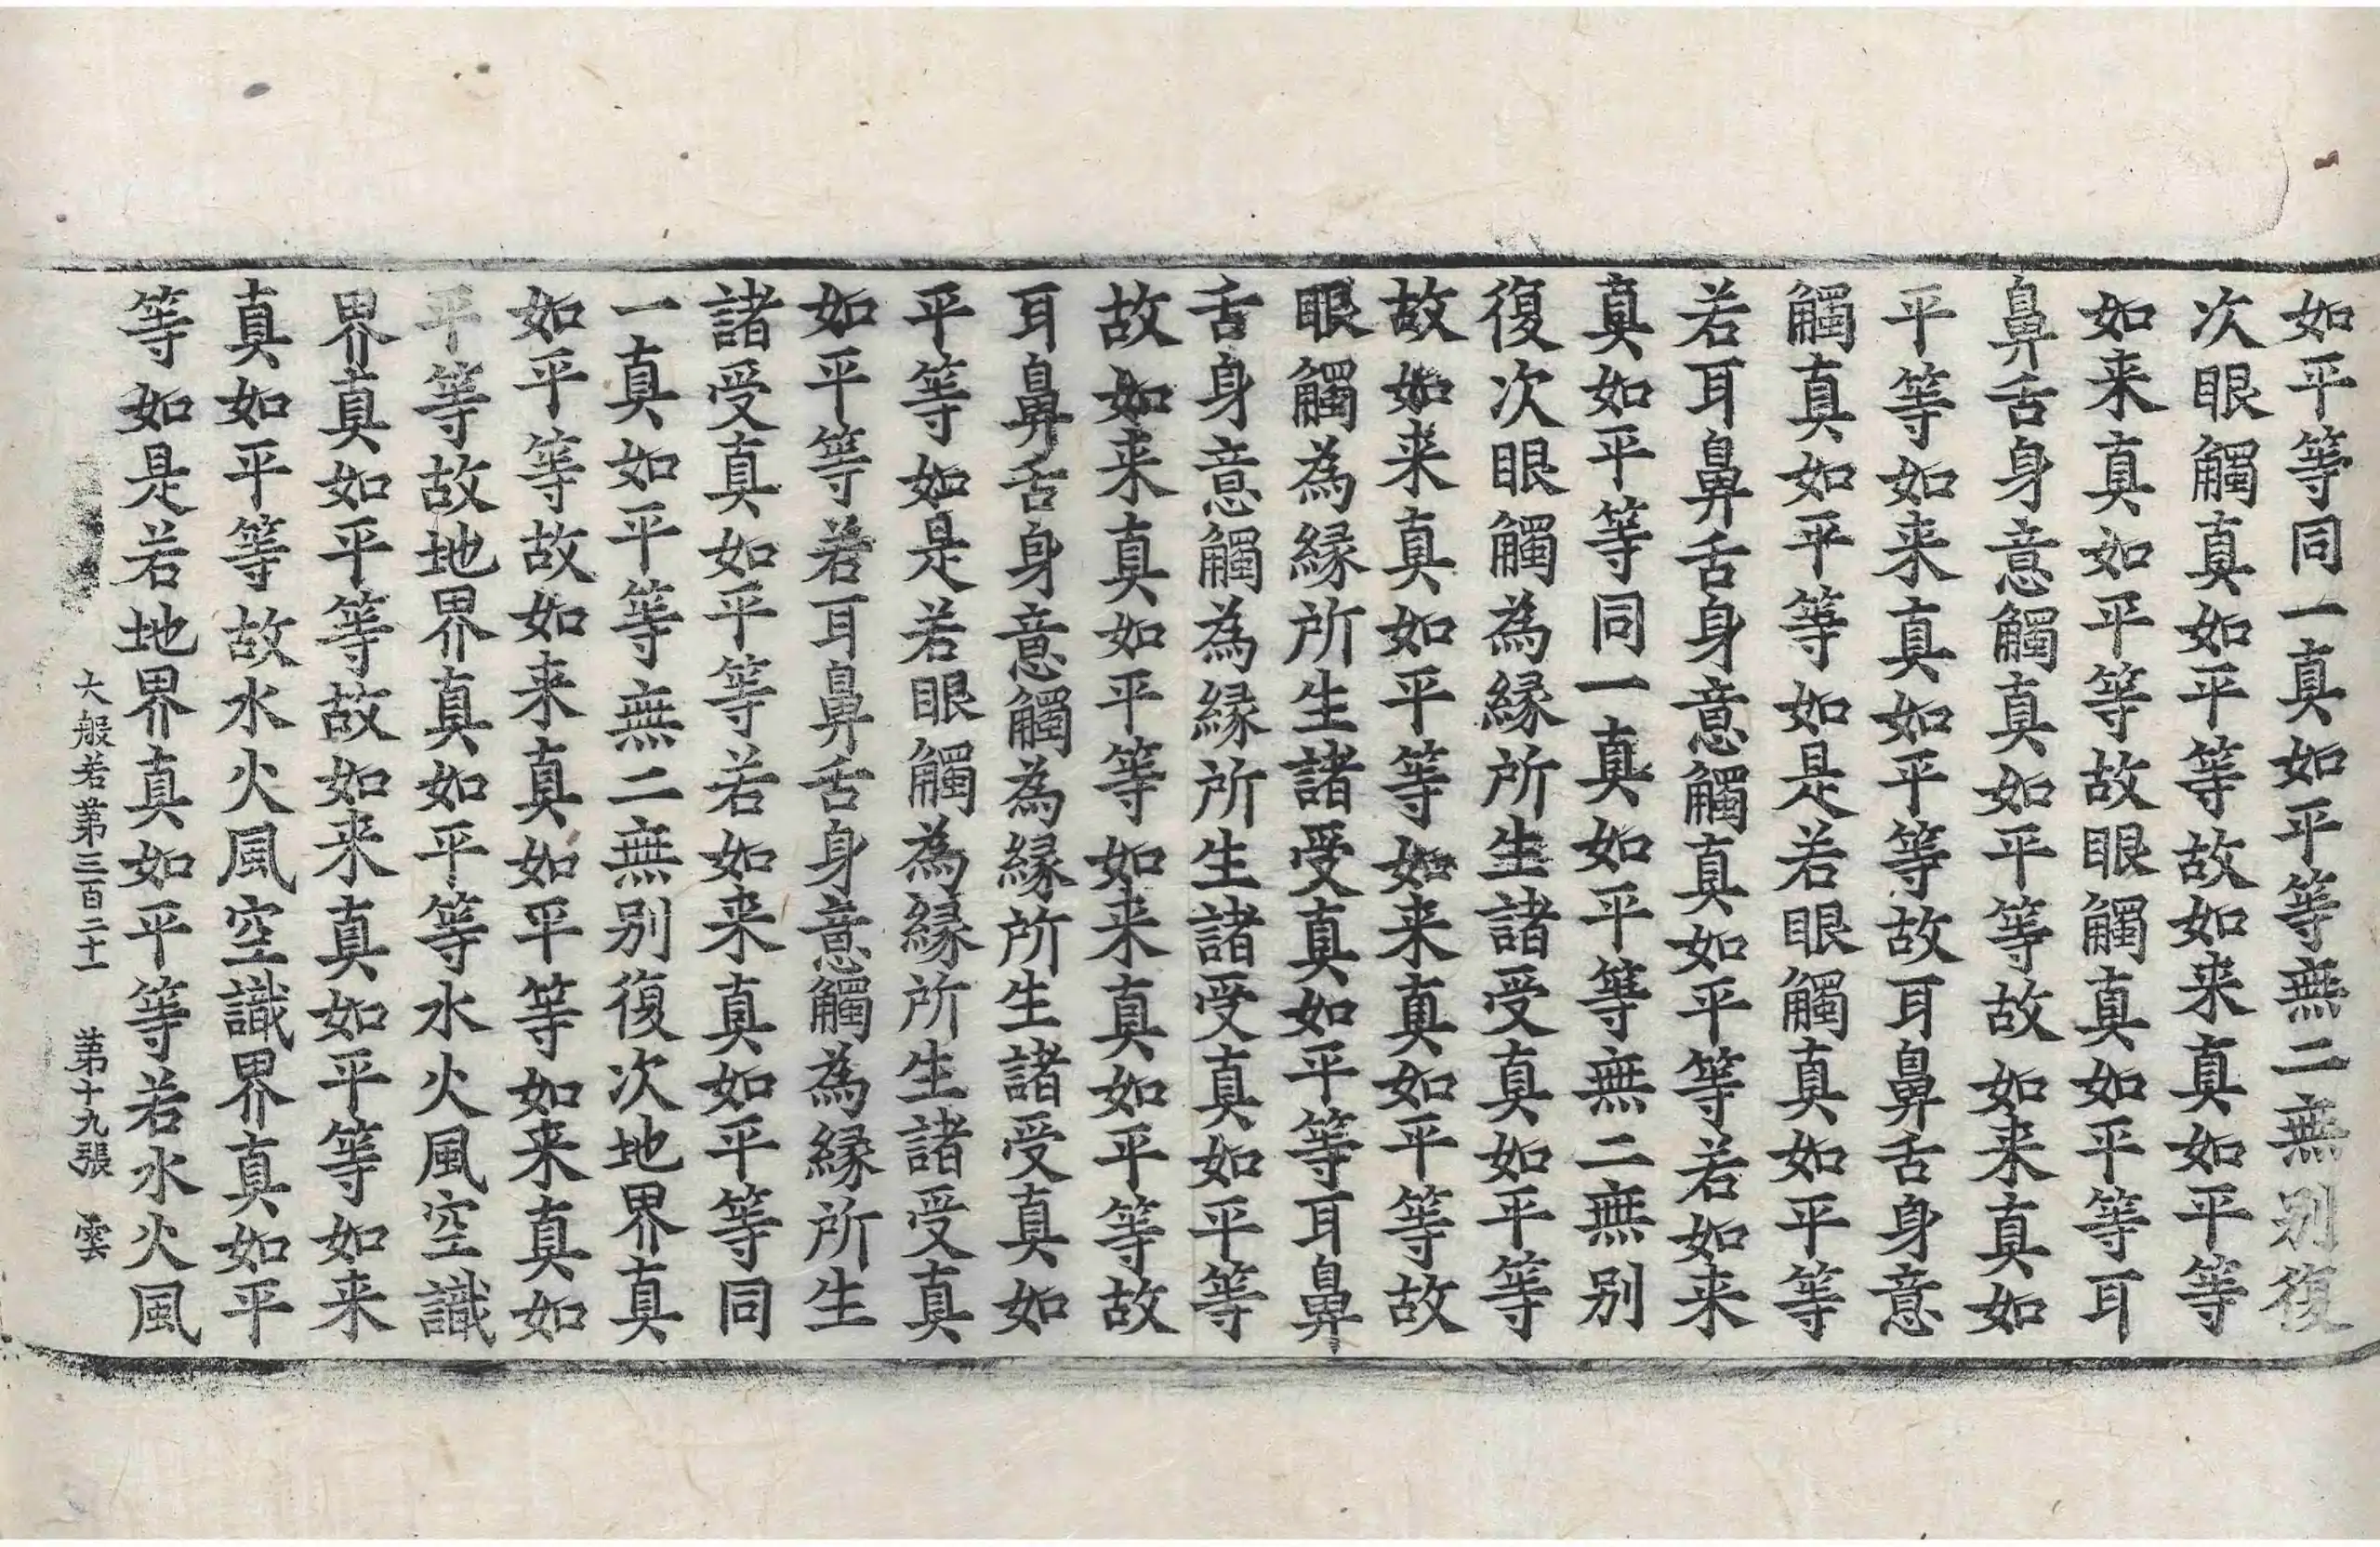 如平等同一真如平等無二無別復
次眼觸真如平等故如来真如平等
如来真如平等故眼觸真如平等耳
鼻舌身意觸真如平等故如来真如
平等如来真如平等故耳鼻舌身意
觸真如平等如是若眼觸真如平等
若耳鼻舌身意觸真如平等若如来
真如平等同一真如平等無二無別
復次眼觸為緣所生諸受真如平等
故如来真如平等如来真如平等故
眼觸為緣所生諸受真如平等耳鼻
舌身意觸為緣所生諸受真如平等
故如来真如平等如来真如平等故
耳鼻舌身意觸為緣所生諸受真如
平等如是若眼觸為緣所生諸受真
如平等若耳鼻舌身意觸為緣所生
諸受真如平等若如来真如平等同
一真如平等無二無別復次地界真
如平等故如来真如平等如来真如
平等故地界真如平等水火風空識
界真如平等故如来真如平等如来
真如平等故水火風空識界真如平
等如是若地界真如平等若水火風
大般若第三百二十一 第十九張 雲